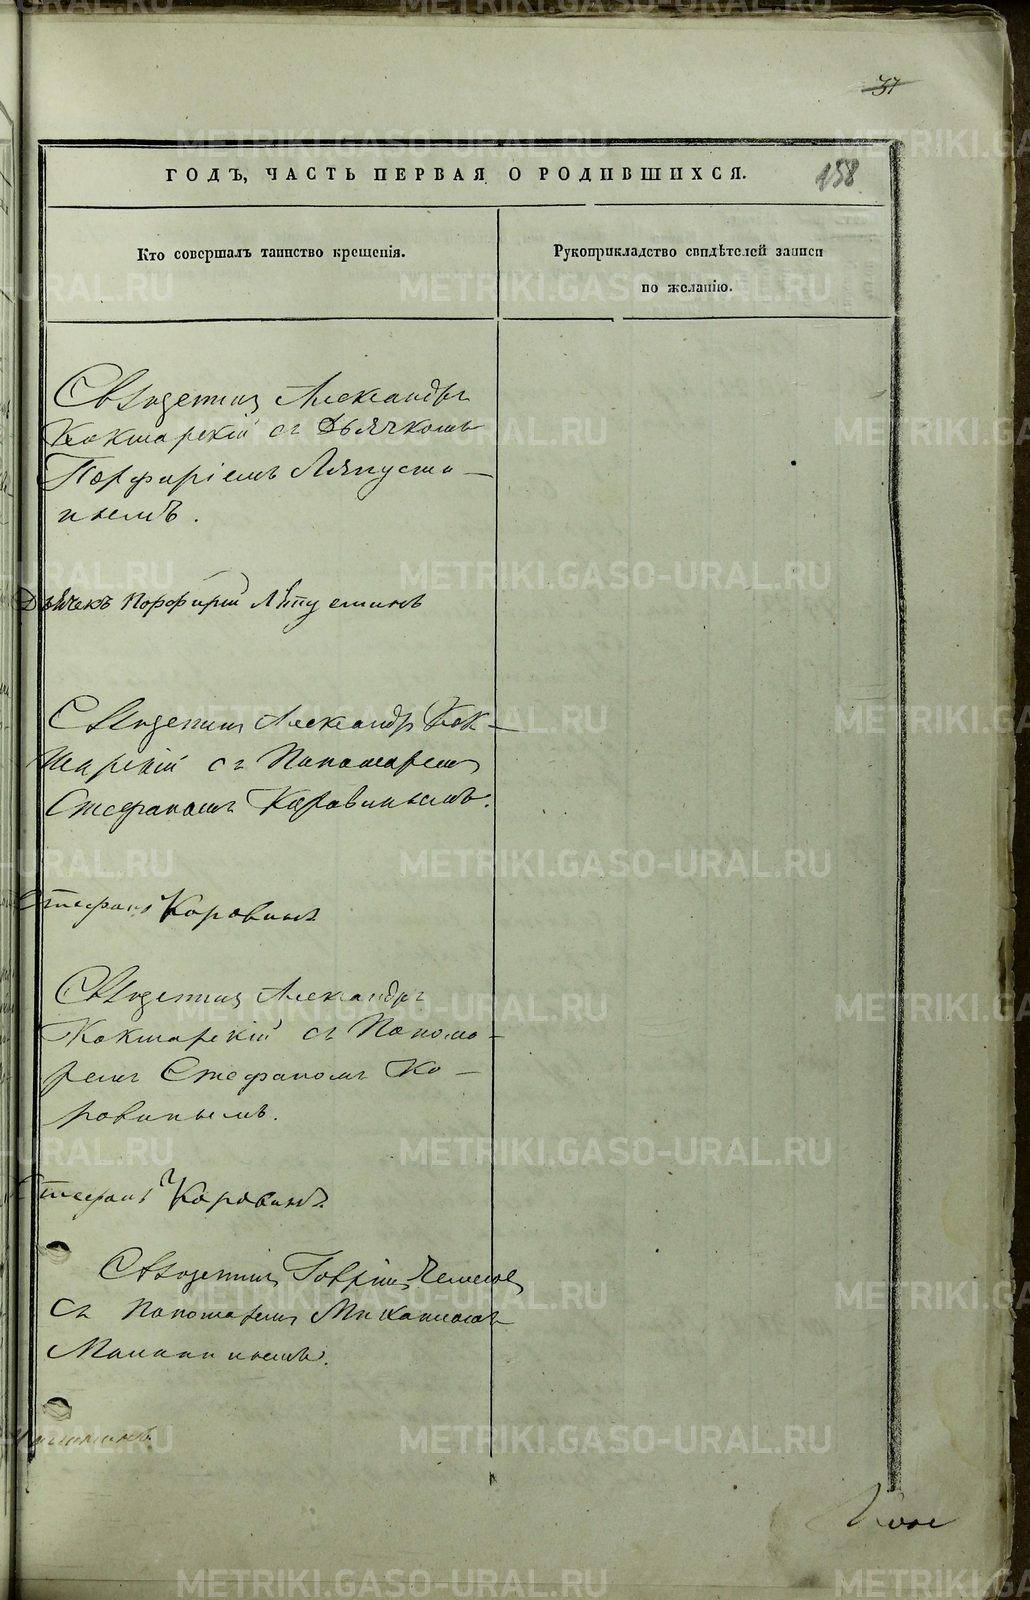 37
158
ГОДЪ, ЧАСТЬ ПЕРВАЯ О РОДИВШИХСЯ.
Кто совершалъ таинство крещенія.
Рукоприкладство свидѣтелей записи
по желанію.
Священникъ Александръ
Кокшарскій съ Дьячкомъ
Порфиріемъ Ляпусти—
нымъ.
Дьячекъ Порфирій Ляпустинъ
Священникъ Александръ Кок—
шарскій съ Пономаремъ
Стефаномъ Коровинымъ.
Стефанъ Коровинъ
Священникъ Александръ
Кокшарскій съ Понома—
ремъ Стефаномъ Ко—
ровинымъ.
Стефанъ Коровинъ
Священникъ Гавріилъ
съ Пономаремъ
METRIKI.GASO-URAL.RU